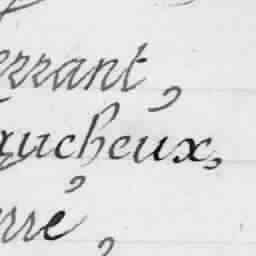 errant,
aucheux,
erré,